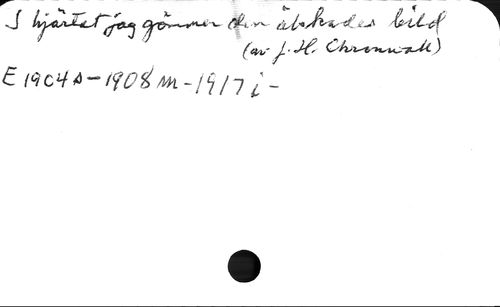 I hjärtat jag gömmer den älskades bild
(av J. H. Chronwall)
E 1904 s - 1908 m - 1917 i -